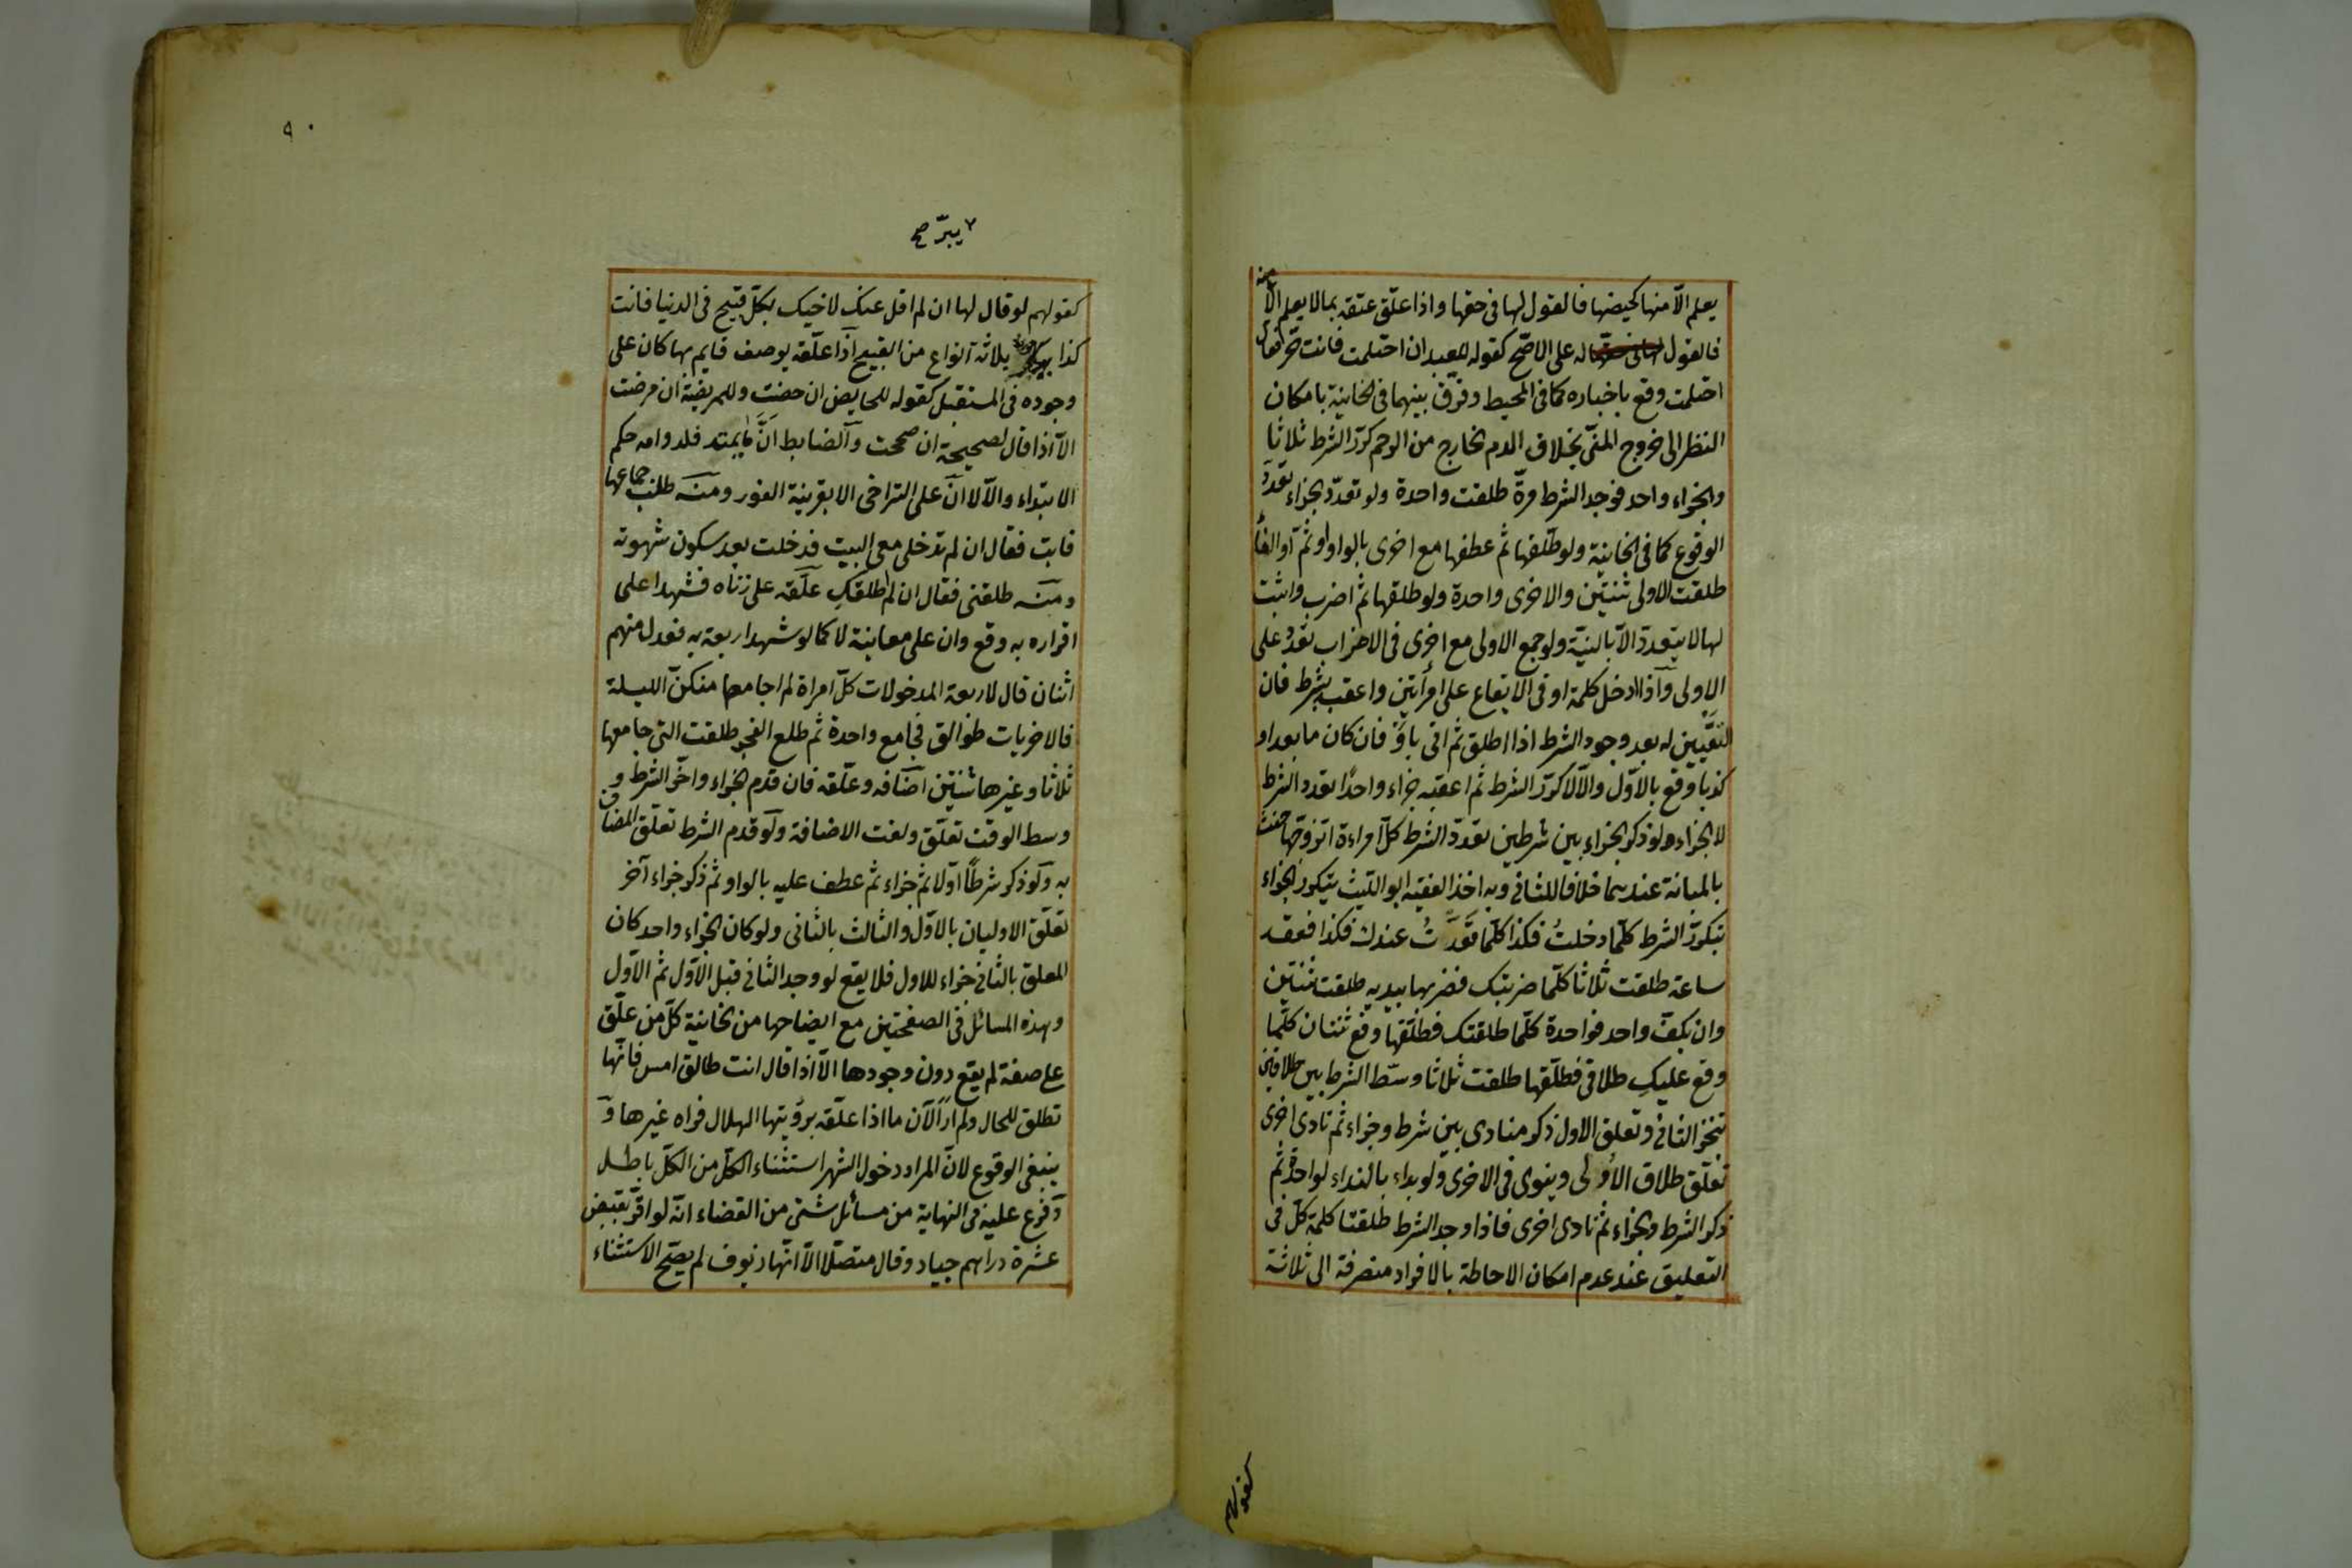 يعلم الّا منها كحيضها فالقول لها فى حقها واذا علّق عتقه بما لا يعلم الّا منه
فالقول له على الاصّح كقوله للعبد ان احتلمت فانت حّر فقال
احتلمت وقع باخباره كما فى المحيط وفرّق بينهما فى الخانية بامكان
النظر الى خروج المنّى بخلاف الدم الخارج من الرحم كرّر الشرط ثلاثا
والجزاء واحد فوجد الشرط مرّة طلقت واحدة ولو تعدّد الجزاء تعدّد
الوقوع كما فى الخانية ولو طلّقها ثم عطفها مع اخرى بالواو او ثمّ او الفاء
طلقت الاولى ثنتين والاخرى واحدة ولو طلقها ثم اضرب واثبت
لها لا يتعدد الّا بالنيّة ولو جمع الاولى مع اخرى فى الاضراب تعدّد على
الاولى وآذا ادخل كلمة او فى الايقاع على امرأتين واعقبه بشرط فان
التّعيين له بعد وجود الشرط اذا اطلق ثم اتى باو فان كان ما بعد او
كذبا وقع بالاوّل والّا لا كرّر الشرط ثم اعقبه جزاء واحدًا تعدد الشرط
لا الجزاء ولو ذكر الجزاء بين شرطين تعدد الشرط كلّ امراءة اتزوجها حنث
بالمبانة عندهما خلافا للثانى وبه اخذ الفقيه ابو الليث يتكرر الجزاء
بتكرّر الشرط كلّما دخلتُ فكذا كلّما قَعَدتُ عندك فكذا فقعد
ساعة طلقت ثلاثا كلّما ضربتك فضربها بيديه طلقت ثنتين
وان بكفّ واحد فواحدة كلّما طلقتك فطلّقها وقع ثنتان كلّما
وقع عليكِ طلاقى فطلّقها طلقت ثلاثا وسّط الشرط بين طلاقين
تنجز الثانى وتعلق الاول ذكر منادى بين شرط وجزاء ثم نادى اخرى
تعلّق طلاق الاُولى وينوى فى الاخرى ولو بداء بالنداء لواحدة ثم
ذكر الشرط والجزاء ثم نادى اخرى فاذا وجد الشرط طلقتا كلمة كلّ فى
التعليق عند عدم امكان الاحاطة بالافراد منصرفة الى ثلاثة
كقولهم
٩٠
٢ يبرّ صح
كقولهم لو قال لها ان لم اقل عنك لاخيك بكلّ قبيح فى الدنيا فانت
كذا بثلاثة انواع من القبيح آذا علّقه بوصف قايم بها كان على
وجوده فى المستقبل كقوله للحايض ان حضت وللمريضة ان مرضت
الّا اذا قال لصحيحة ان صححت وآلضابط انَّ ما يمتد فلدوامه حكم
الابتداء والّا لا انّ على التراخى الا بقرينة الفور ومنه طلب جماعها
فابت فقال ان لم تدخلى معى البيت فدخلت بعد سكون شهوته
ومنه طلقنى فقال ان لم اطلقكِ علّقه على زناه فشهدا على
اقراره به وقع وان على معاينة لا كما لو شهد اربعة به فعدل منهم
اثنان قال لاربعة المدخولات كلّ امراة لم اجامعها منكنّ الليلة
فالاخريات طوالق فجامع واحدة ثم طلع الفجر طلقت التى جامعها
ثلاثا وغيرها ثنتين اضافه وعلّقه فان قدم الجزاء واخّر الشرط و
وسط الوقت تعلّق ولغت الاضافة ولَو قدم الشرط تعلّق المضاف
به ولَو ذكر شرطًا اولا ثم جزاء ثم عطف عليه بالواو ثم ذكر جزاء آخر
تعلّق الاوليان بالاوّل والثالث بالثانى ولو كان الجزاء واحد كان
المعلق بالثانى جزاء للاول فلا يقع لو وجد الثانى قبل الاوّل ثم الاوّل
وهذه المسائل فى الصفحتين مع ايضاحها من الخانية كلّ من علّق
على صفة لم يقع دون وجودها الّا اذا قال انت طالق امس فانّها
تطلق للحال ولم ار الآن ما اذا علّقه برؤيتها الهلال فراه غيرها و
ينبغى الوقوع لانّ المراد دخول الشهر استثناء الكلّ من الكلّ باطل
وفرع عليه فى النهاية من مسائل شتى من القضاء انّه لو اقّر بقبض
عشرة دراهم جياد وقال متصلّا الّا انّها زيوف لم يصّح الاستثناء